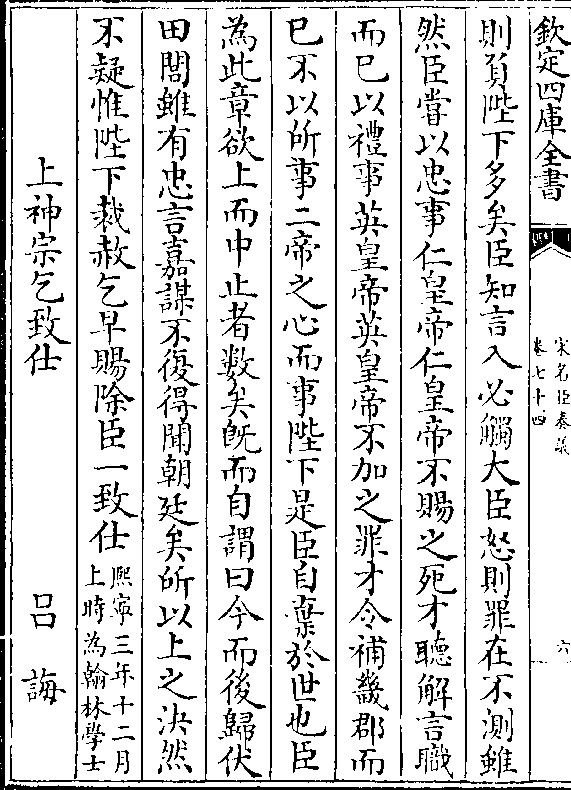 欽定四庫全書
宋名臣奏議
卷七十四
六
則負陛下多矣臣知言入必觸大臣怒則罪在不測雖
然臣嘗以忠事仁皇帝仁皇帝不賜之死才聽解言職
而已以禮事英皇帝英皇帝不加之罪才令補畿郡而
已不以所事二帝之心而事陛下是臣自棄於世也臣
為此章欲上而中止者數矣旣而自謂曰今而後歸伏
田閭雖有忠言嘉謀不復得聞朝廷矣所以上之決然
不疑惟陛下裁赦乞早賜除臣一致仕
熙寧三年十二月
上時為翰林學士
上神宗乞致仕
呂誨